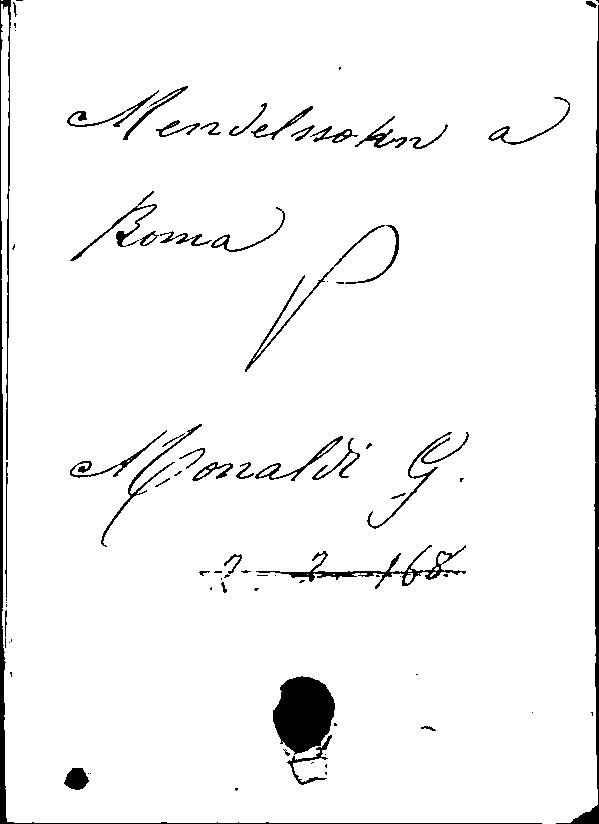 Mendelssohn a
Roma
P
Monaldi G.
2. 2. 168